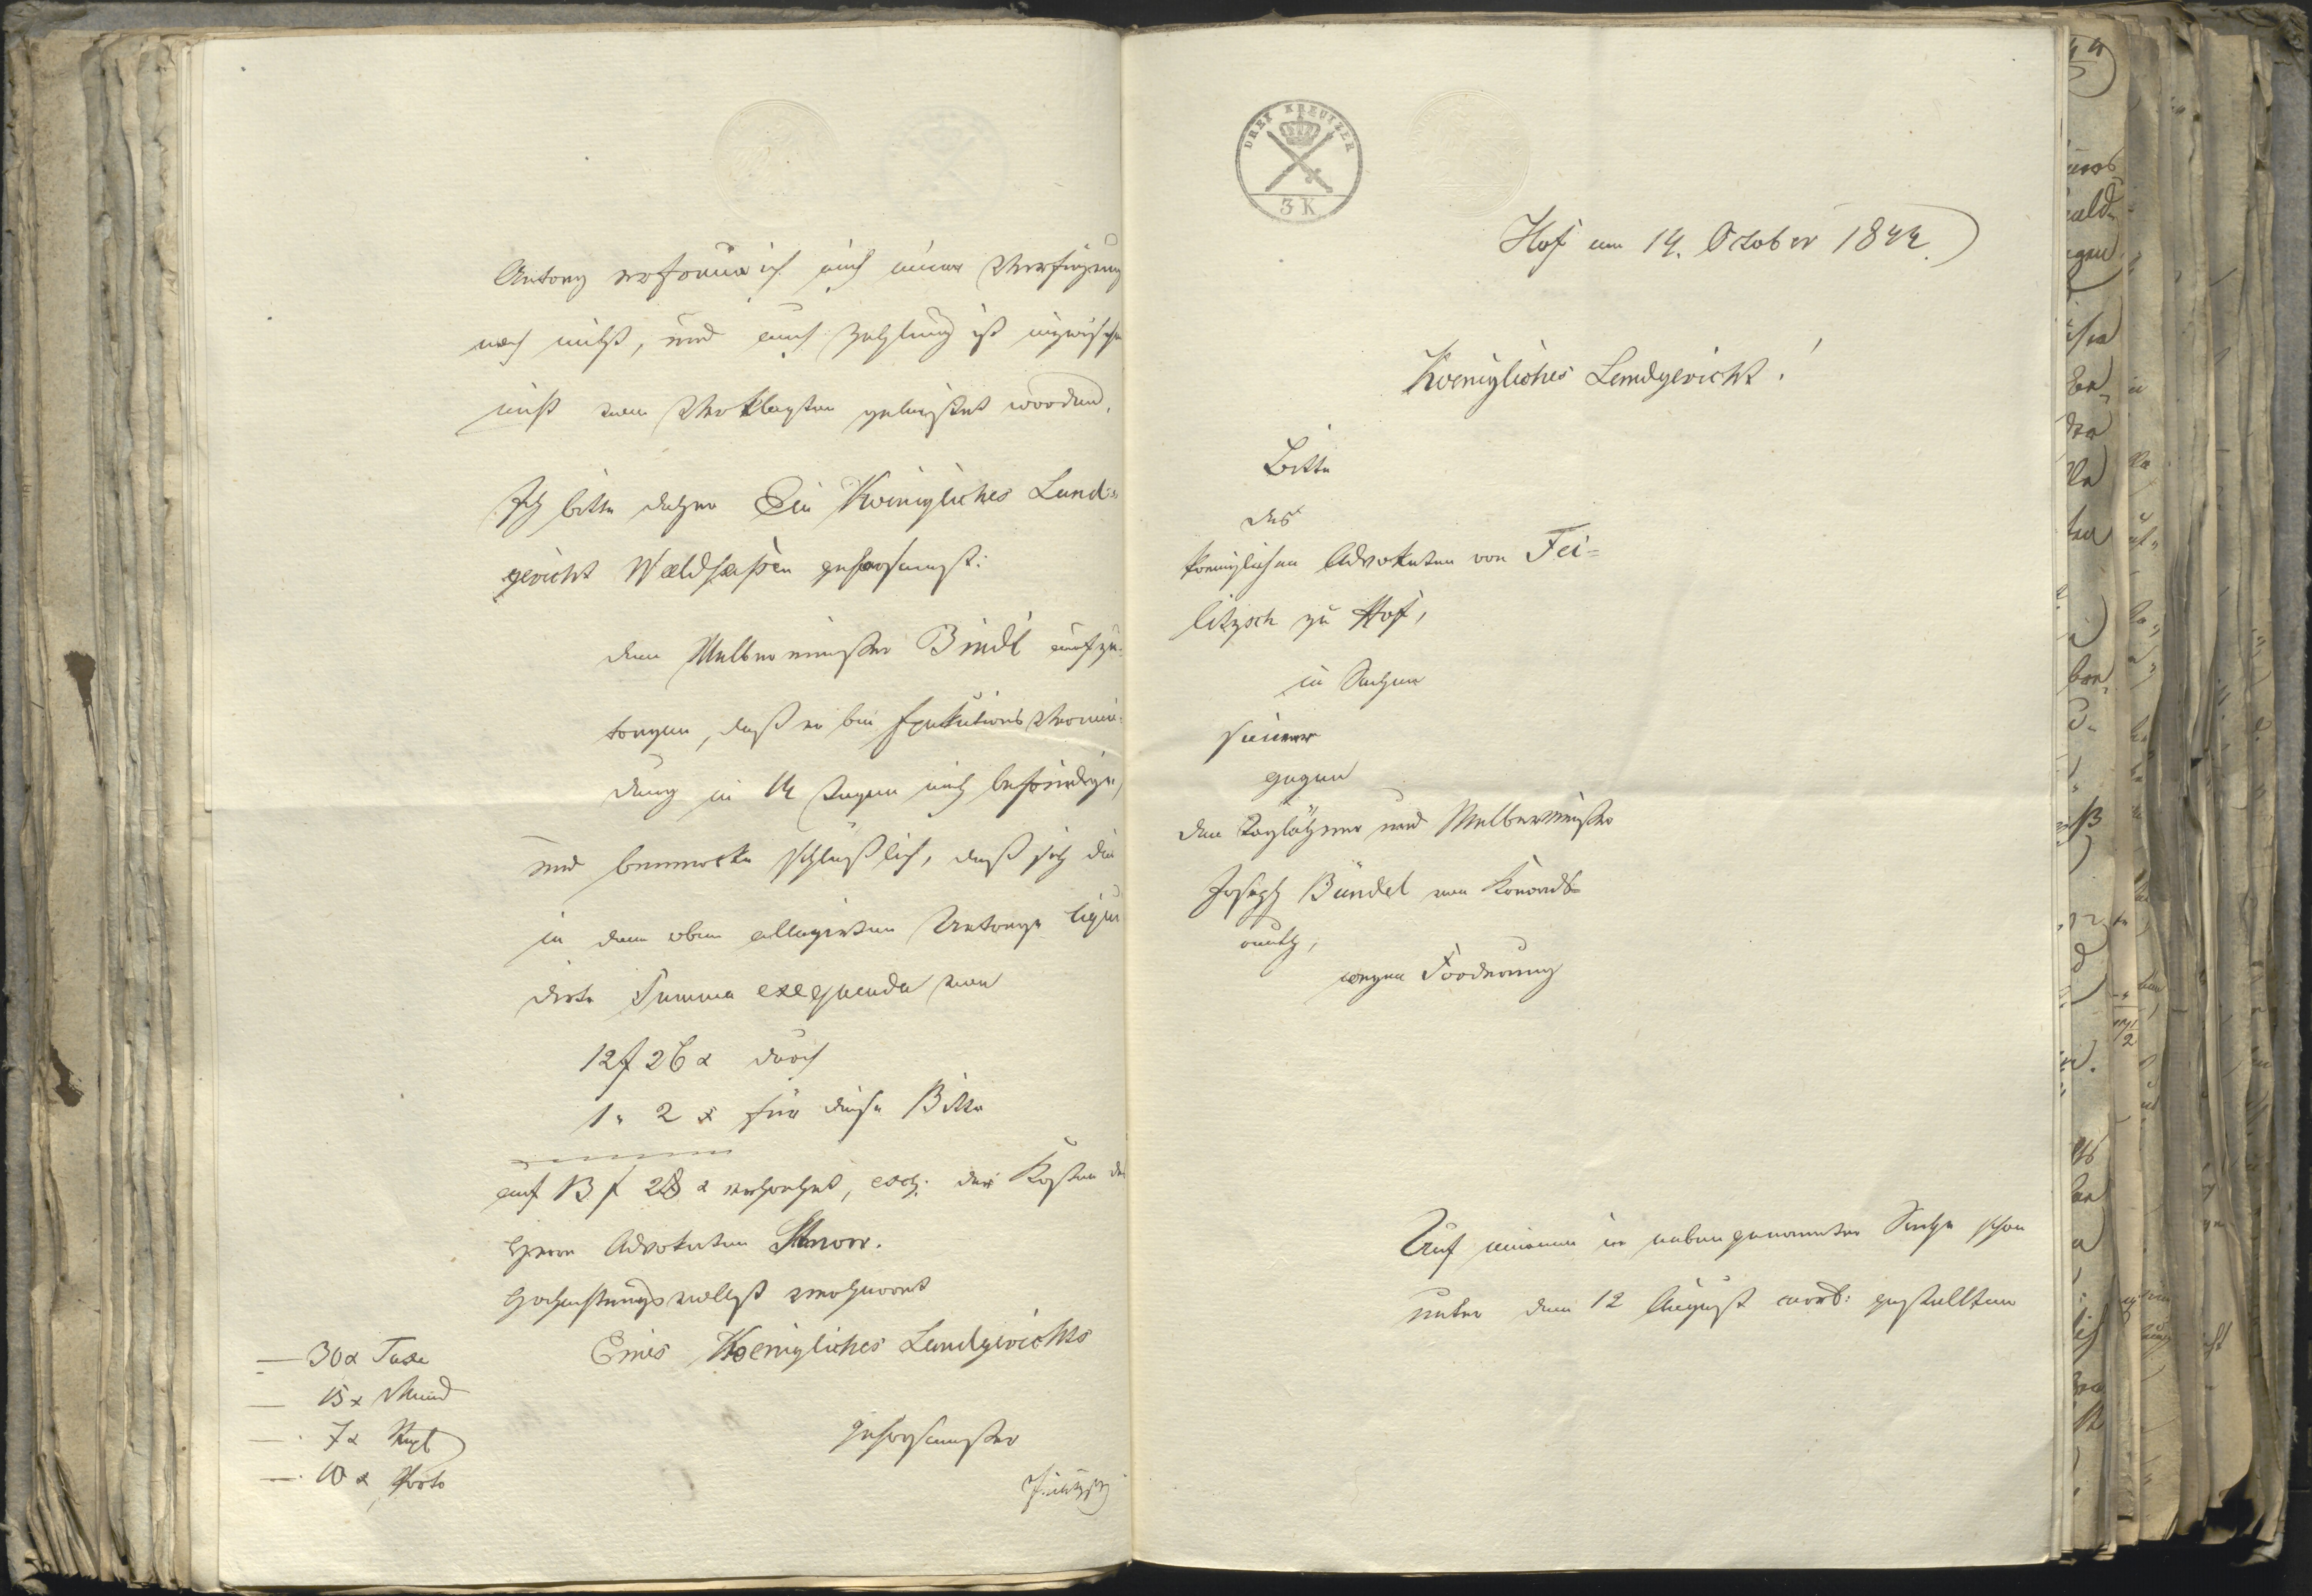 Antrag erfolgte ich auch immer Verfügung
noch nicht, und auch Zahlung ist inzwischen
nicht vom Verklagten geleistet worden.
Ich bitte daher Ein Koenigliches Land-
gericht Waldsassen gehorsamst:
dem Melbermeister Bindl aufzu-
tragen, daß er bei Exekutions Vermei-
dung in 14 Tagen mich befriedige,
und bemerke schlüßlich, daß sich die
in dem oben allegirten Antrage liqui-
dirte Summa exequenda von
12 f 26 x durch
1 " 2 x für diese Bitte
auf 13 f 28 x erhöhet, excl. der Kosten des
Herrn Advokaten
Hochachtungsvollest verharrt
Eines Koenigliches Landgerichts
gehorsamster
Feilitzsch
— 30 x Taxe
— 15 x Mund
— 7 x Stpl
— 10 x Porto
DREI KREUTZER
3 K
Hof am 14. October 1844.
Koenigliches Landgericht!
Bitte
des
koeniglichen Advokaten von Fei=
litzsch zu Hof,
in Sachen
seiner
gegen
den Taglöhner und Melbermeister
Joseph Bündel von Konners-
reuth,
wegen Forderung
Auf meinen in nebengenannter Sache schon
unter dem 12 August curr: gestellten